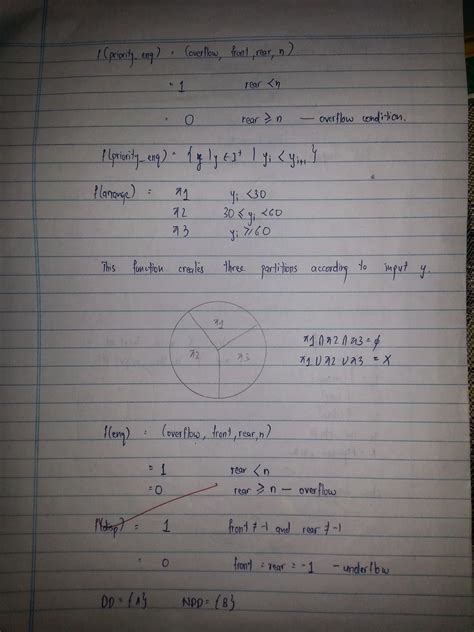 f(priority_enq) = (overflow, front, rear, n)
= 1 rear < n
= 0 rear ≥ n — overflow condition.
f(priority_enq) = { y | y ∈ I⁺ | yᵢ < yᵢ₊₁ }
f(arrange) = x1 yᵢ < 30
x2 30 ≤ yᵢ < 60
x3 yᵢ ≥ 60
This function creates three partitions according to input y.
x1
x2 x3
x1 ∩ x2 ∩ x3 = ϕ
x1 ∪ x2 ∪ x3 = X
f(enq) = (overflow, front, rear, n)
= 1 rear < n
= 0 rear ≥ n — overflow
= 1 front ≠ -1 and rear ≠ -1
= 0 front = rear = -1 - underflow
DD = {A} NDD = {B}